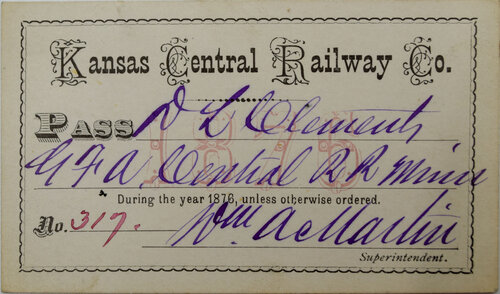 Kansas Central Railway Co.
PASS D L Clements
G F A, Central R R Minn
During the year 1876, unless otherwise ordered.
No. 317. Wm A Martin
Superintendent.